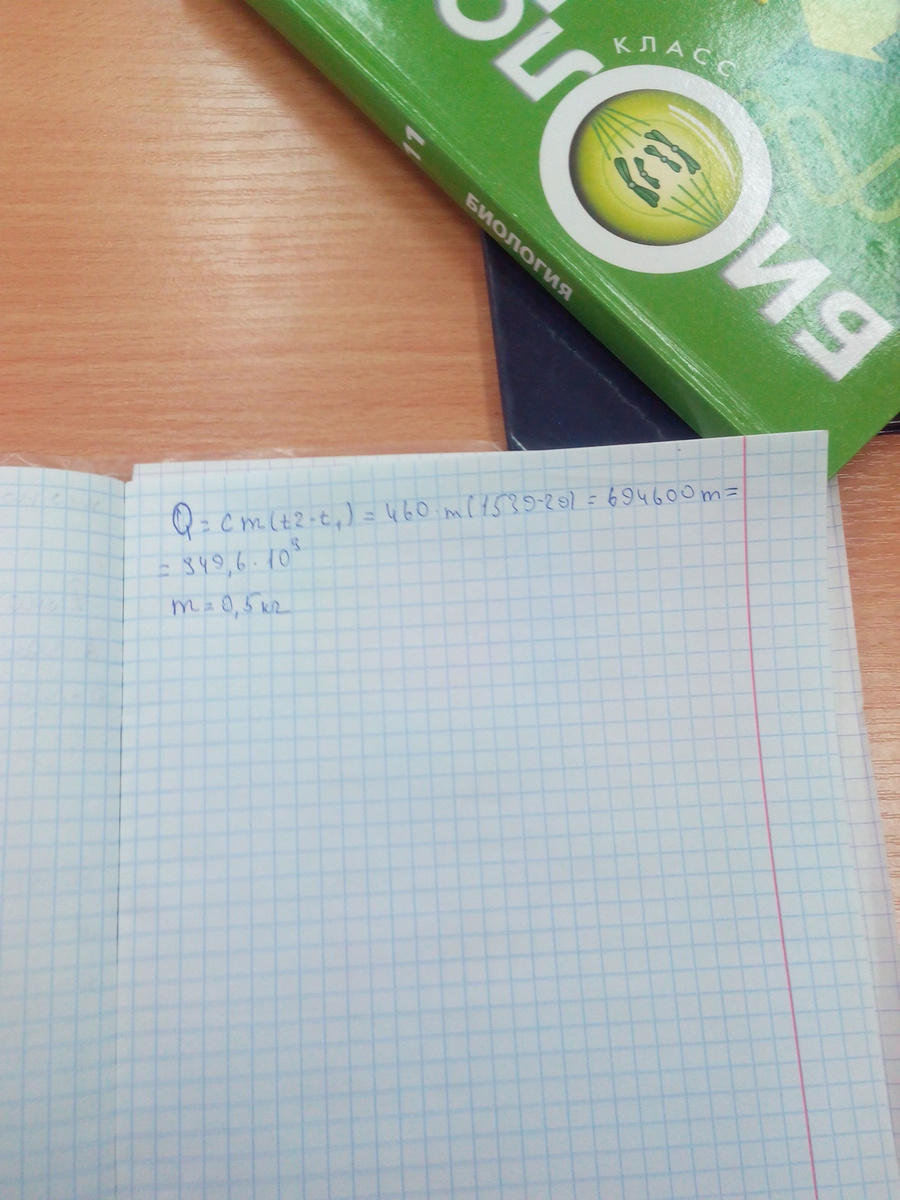 КЛАСС
БИОЛО
11
БИОЛОГИЯ
Q = cm(t2-t₁) = 460·m(1539-29) = 694600m =
= 349,6·10³
m = 0,5 кг